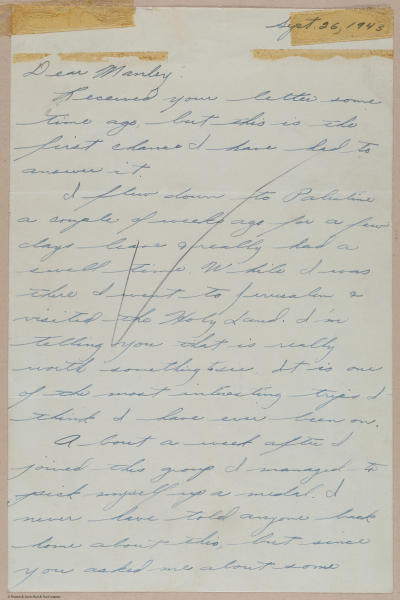 Sept. 26, 1943
Dear Manley:
Received your letter some
time ago, but this is the
first chance I have had to
answer it.
I flew down to Palestine
a couple of weeks ago for a few
days leave & really had a
swell time. While I was
there I went to Jerusalem &
visited the Holy Land. I'm
telling you that is really
worth something to see. It is one
of the most interesting trips I
think I have ever been on.
About a week after I
joined this group I managed to
pick myself up a medal. I
never have told anyone back
home about this, but since
you asked me about some